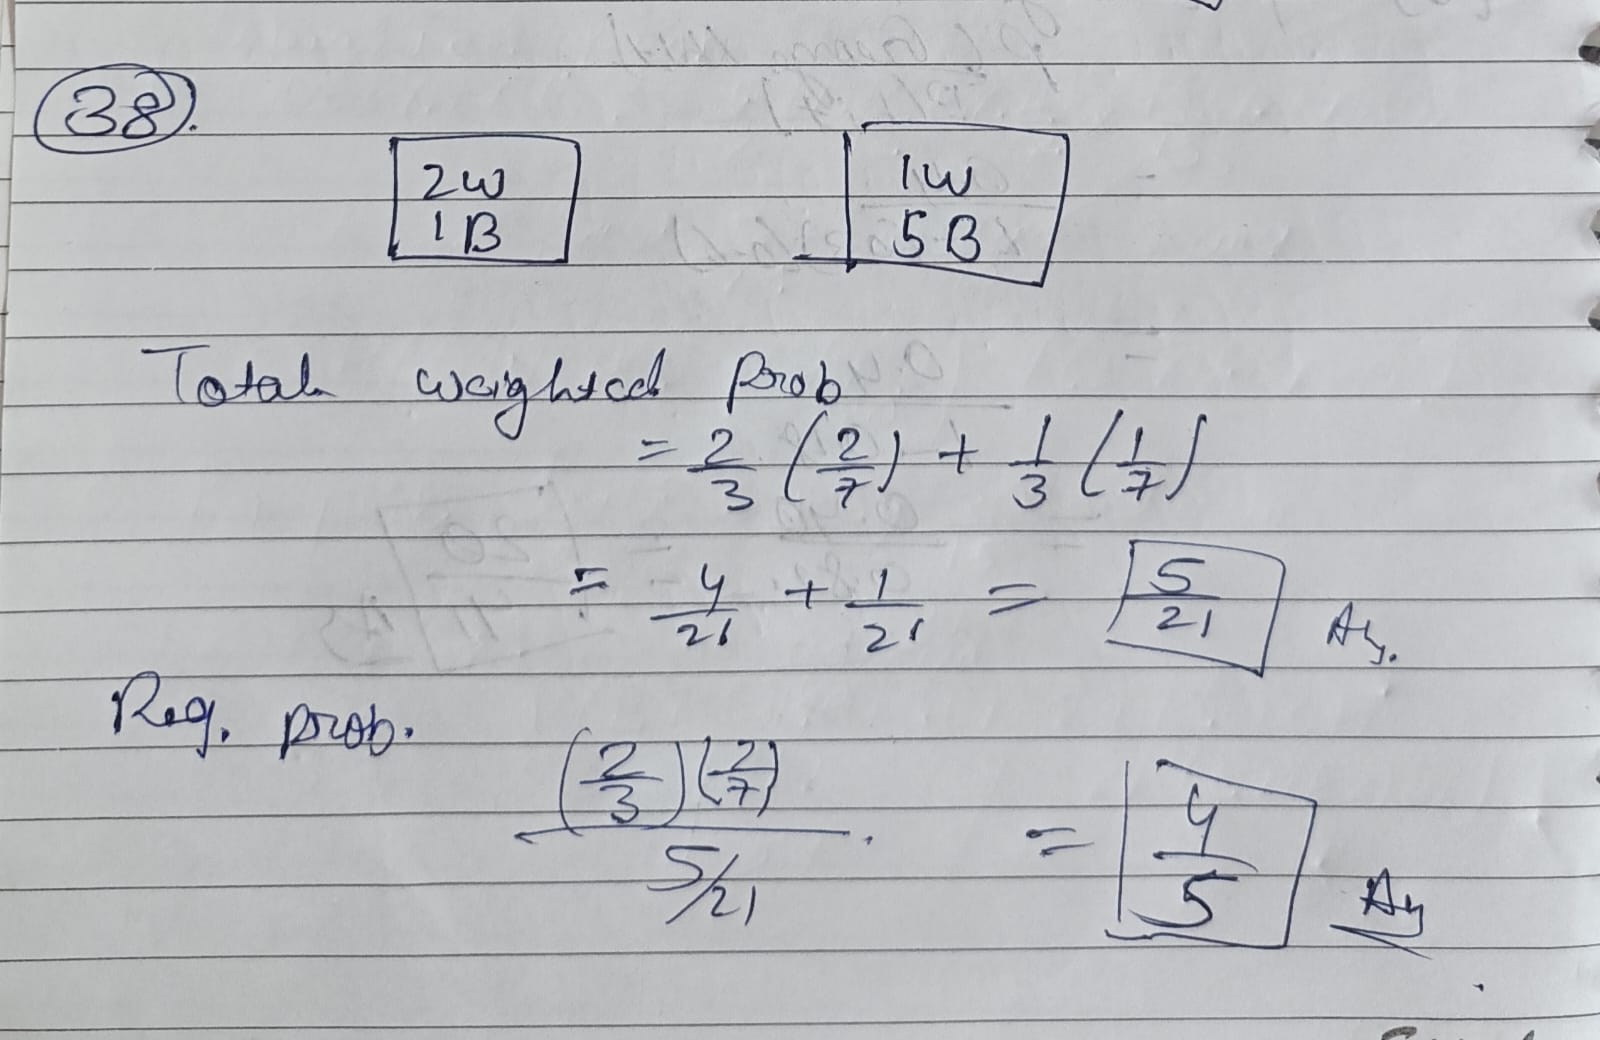 38.
2W 1W
1B 5B
Total weighted prob
= 2/3 (2/7) + 1/3 (1/7)
= 4/21 + 1/21 = 5/21 Ans.
Req. prob.
(2/3)(2/7) / 5/21 = 4/5 Ans